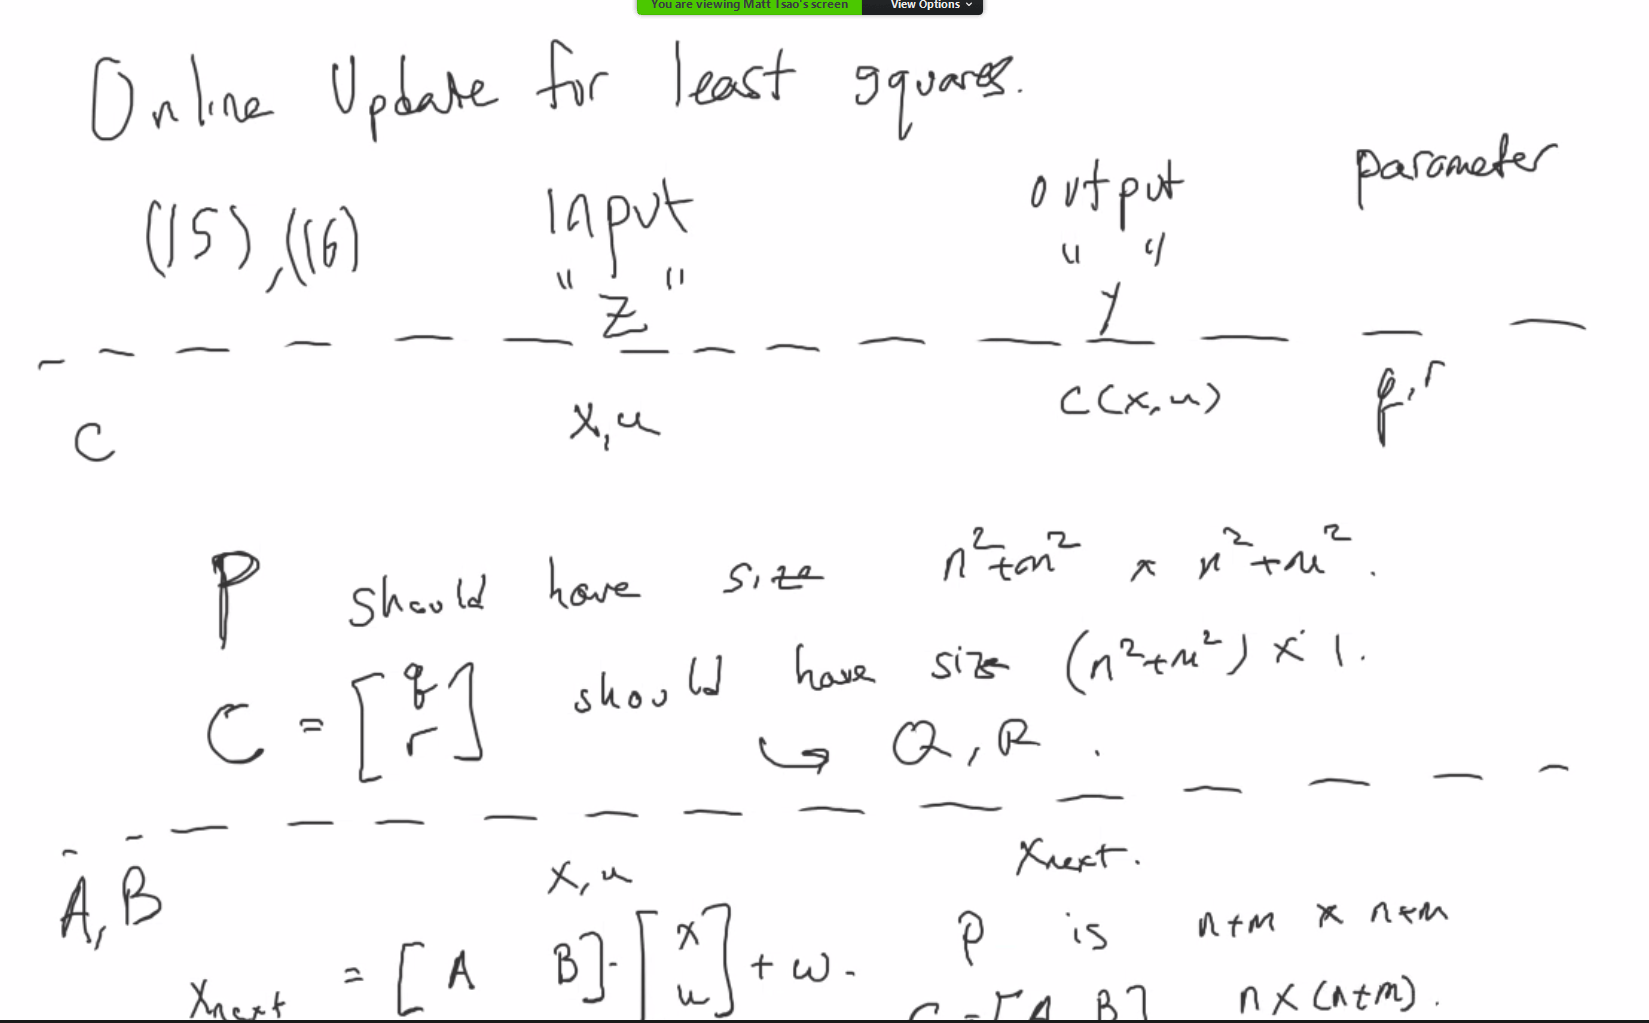 You are viewing Matt Tsao's screen View Options
Online Update for least squares.
(15), (16) input output parameter
"z" "y"
C x,u c(x,u) q,r
P should have size n²+m² x n²+m².
C = [q r] should have size (n²+m²) x 1.
↪ Q, R.
A, B x,u xnext.
xnext = [A B]·[x u] + w. P is n+m x n+m
C = [A B] n x (n+m).